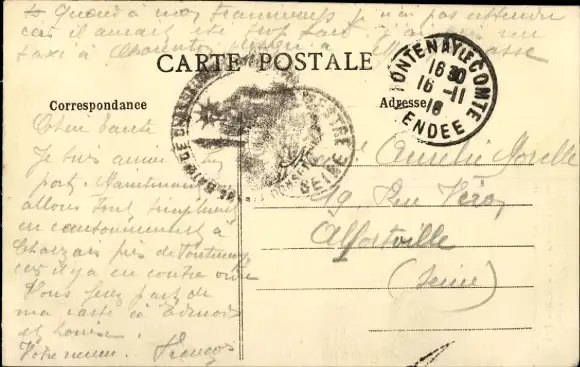 Quand à mon tramways je n'ai pas attendu
car il aurait été trop tard j'ai pris un
taxi à Charenton
CARTE POSTALE
Correspondance
Adresse
FONTENAY-LE-COMTE
16 30
16 - 11
16
VENDEE
SEINE
Chère tante
Je suis arrivé à bon
port. Maintenant
allons tout simplement
en cantonnement à
Charzais près de Fontenay
car il y a eu contre ordre
Vous ferez part de
ma carte à Edmond
et Louise.
Votre neveu. François
Aurélie Morelle
19, Rue Véron
Alfortville
(Seine)